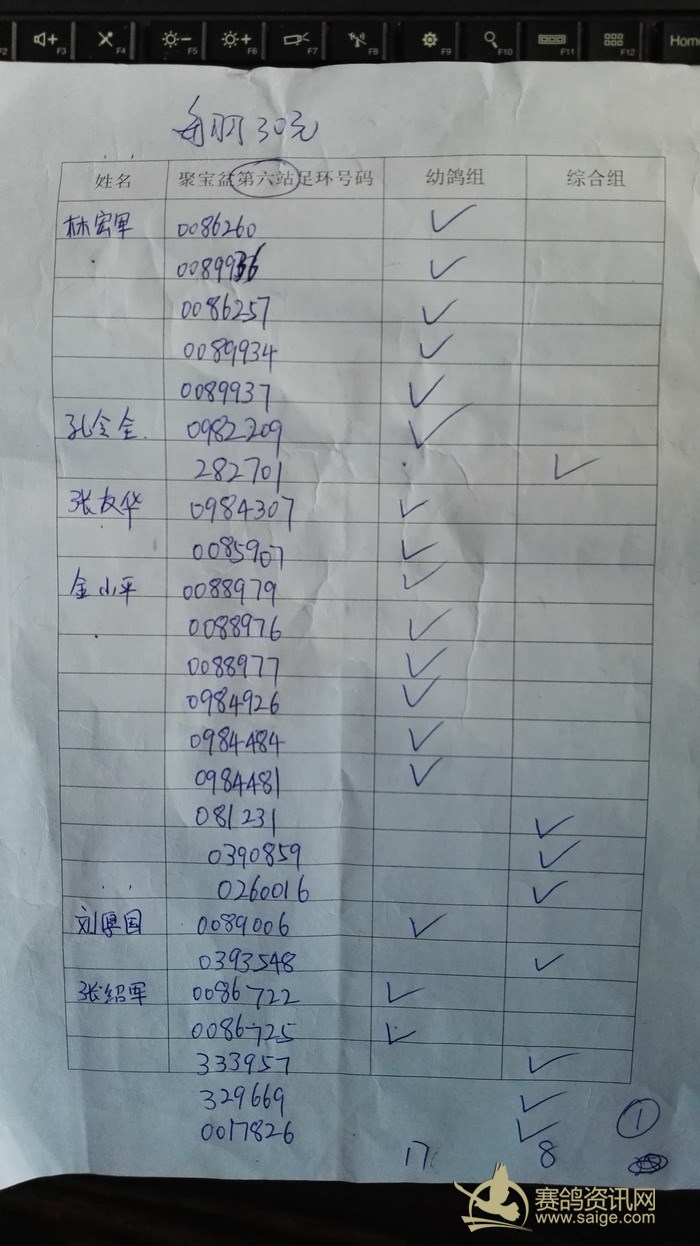 F3 F4 F5 F6 F7 F8 F9 F10 F11 F12 Home
每羽30元
姓名 聚宝盆第六站足环号码 幼鸽组 综合组
林宏军 0086260 ✓
0089936 ✓
0086257 ✓
0089934 ✓
0089937 ✓
孔令全 0982209 ✓
282701 ✓
张友华 0984307 ✓
0085907 ✓
金小平 0088979 ✓
0088976 ✓
0088977 ✓
0984926 ✓
0984484 ✓
0984481 ✓
081231 ✓
0390859 ✓
0260016 ✓
刘厚国 0089006 ✓
0393548 ✓
张绍军 0086722 ✓
0086725 ✓
333957 ✓
329669 ✓
0017826 ✓
17 8 ①
赛鸽资讯网
www.saige.com